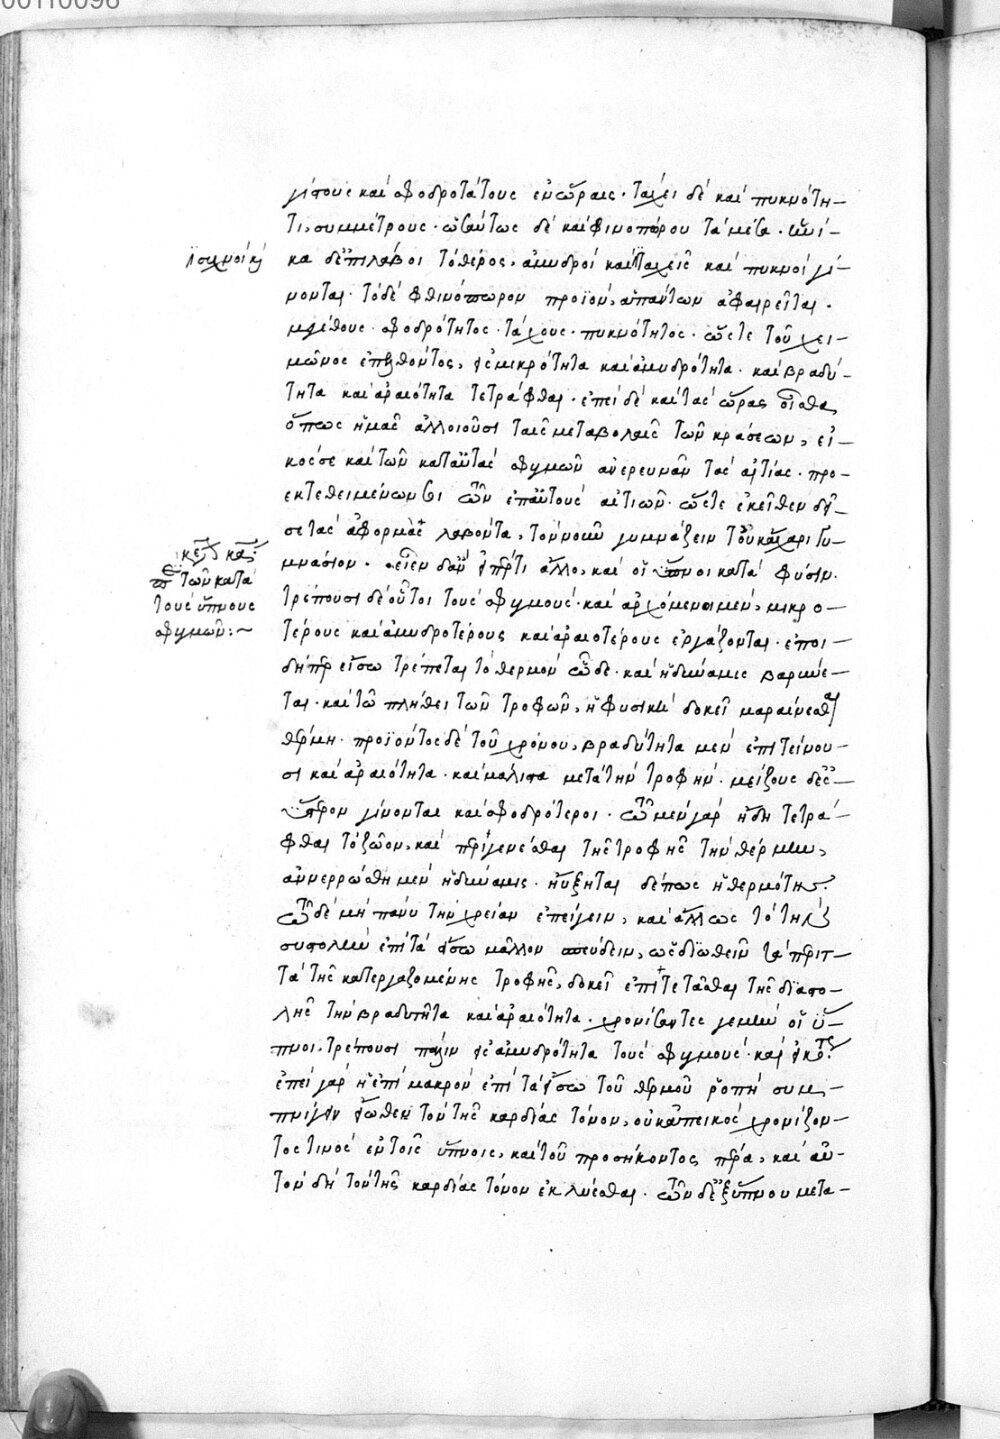 γίστους καὶ σφοδροτάτους ἐν ὥραις· τάχει δὲ καὶ πυκνότη-
τι, συμμέτρους· ὡσαύτως δὲ καὶ φθινοπώρου τὰ μέσα· ἡνί-
ἰσχνοί καὶ
κα δ' ἐπιλάβοι τὸ θέρος, ἀμυδροὶ καὶ ταχεῖς καὶ πυκνοὶ γί-
νονται· τὸ δὲ φθινόπωρον προϊὸν, ἁπάντων ἀφαιρεῖται·
μεγέθους· σφοδρότητος· τάχους· πυκνότητος· ὥστε τοῦ χει-
μῶνος ἐπελθόντος, ἐς μικρότητα καὶ ἀμυδρότητα· καὶ βραδύ-
τητα καὶ ἀραιότητα τετράφθαι· ἐπεὶ δὲ καὶ τὰς ὥρας οἶσθα,
ὅπως ἡμᾶς ἀλλοιοῦσι ταῖς μεταβολαῖς τῶν κράσεων, εἰ-
κός σε καὶ τῶν κατ' αὐτὰς σφυγμῶν ἀνερευνᾶν τὰς αἰτίας· προ-
εκτεθειμένων σοι τῶν ἐπ' αὐτοὺς αἰτιῶν· ὥστε ἐκεῖθεν δή
σε τὰς ἀφορμὰς λαβόντα, τὸν νοῦν γυμνάζειν τοῦ κἀχάρι γυ-
κεφ κας:
περὶ τῶν κατὰ
τοὺς ὕπνους
σφυγμῶν:~
μνάσιον· εἶεν δ' ἂν ἔτι ἄλλο, καὶ οἱ ὕπνοι κατὰ φύσιν·
τρέπουσι δὲ οὗτοι τοὺς σφυγμούς· καὶ ἀρχόμενοι μὲν, μικρο-
τέρους καὶ ἀμυδροτέρους καὶ ἀραιοτέρους ἐργάζονται· ἐπει-
δήπερ εἴσω τρέπεται τὸ θερμὸν ὧδε· καὶ ἡ δύναμις βαρύνε-
ται· καὶ τῷ πλήθει τῶν τροφῶν, ἡ φυσικὴ δοκεῖ μαραίνεσθαι
θέρμη· προϊόντος δὲ τοῦ χρόνου, βραδύτητα μὲν ἐπιτείνου-
σι καὶ ἀραιότητα· καὶ μάλιστα μετὰ τὴν τροφήν· μείζους δ' ἐς
ὕστερον γίνονται καὶ σφοδρότεροι· τῷ μὲν γὰρ ἤδη τετρά-
φθαι τὸ ζῶον, καὶ περιγενέσθαι τῆς τροφῆς τὴν θέρμην,
ἀνερρώσθη μὲν ἡ δύναμις· ηὔξηται δέ πως ἡ θερμότης·
τῷ δὲ μὴ πάνυ τὴν χρείαν ἐπείγειν, καὶ ἄλλως τὸ τῆς
συστολῆς ἐπὶ τὰ ἔσω μᾶλλον σπεύδειν, ὡς διωθεῖν τὰ περιτ-
τὰ τῆς κατεργαζομένης τροφῆς, δοκεῖ ἐπιτετᾶσθαι τῆς διαστο-
λῆς τὴν βραδυτῆτα καὶ ἀραιότητα· χρονίσαντες γε μὴν οἱ ὕ-
πνοι, τρέπουσι πάλιν ἐς ἀμυδρότητα τοὺς σφυγμούς·
ἐπεὶ γὰρ ἡ ἐπὶ μακρὸν ἐπὶ τὰ ἔσω τοῦ θερμοῦ ῥοπὴ συμ-
πνίγειν ἔωθεν τὸν τῆς καρδίας τόνον, οὐκ ἀπεικὸς χρονίζον-
τος τινὸς ἐν τοῖς ὕπνοις, καὶ τοῦ προσήκοντος πέρα, καὶ αὐ-
τὸν δὴ τὸν τῆς καρδίας τόνον ἐκλύεσθαι· τῶν δ' ἐξ ὕπνου μετα-